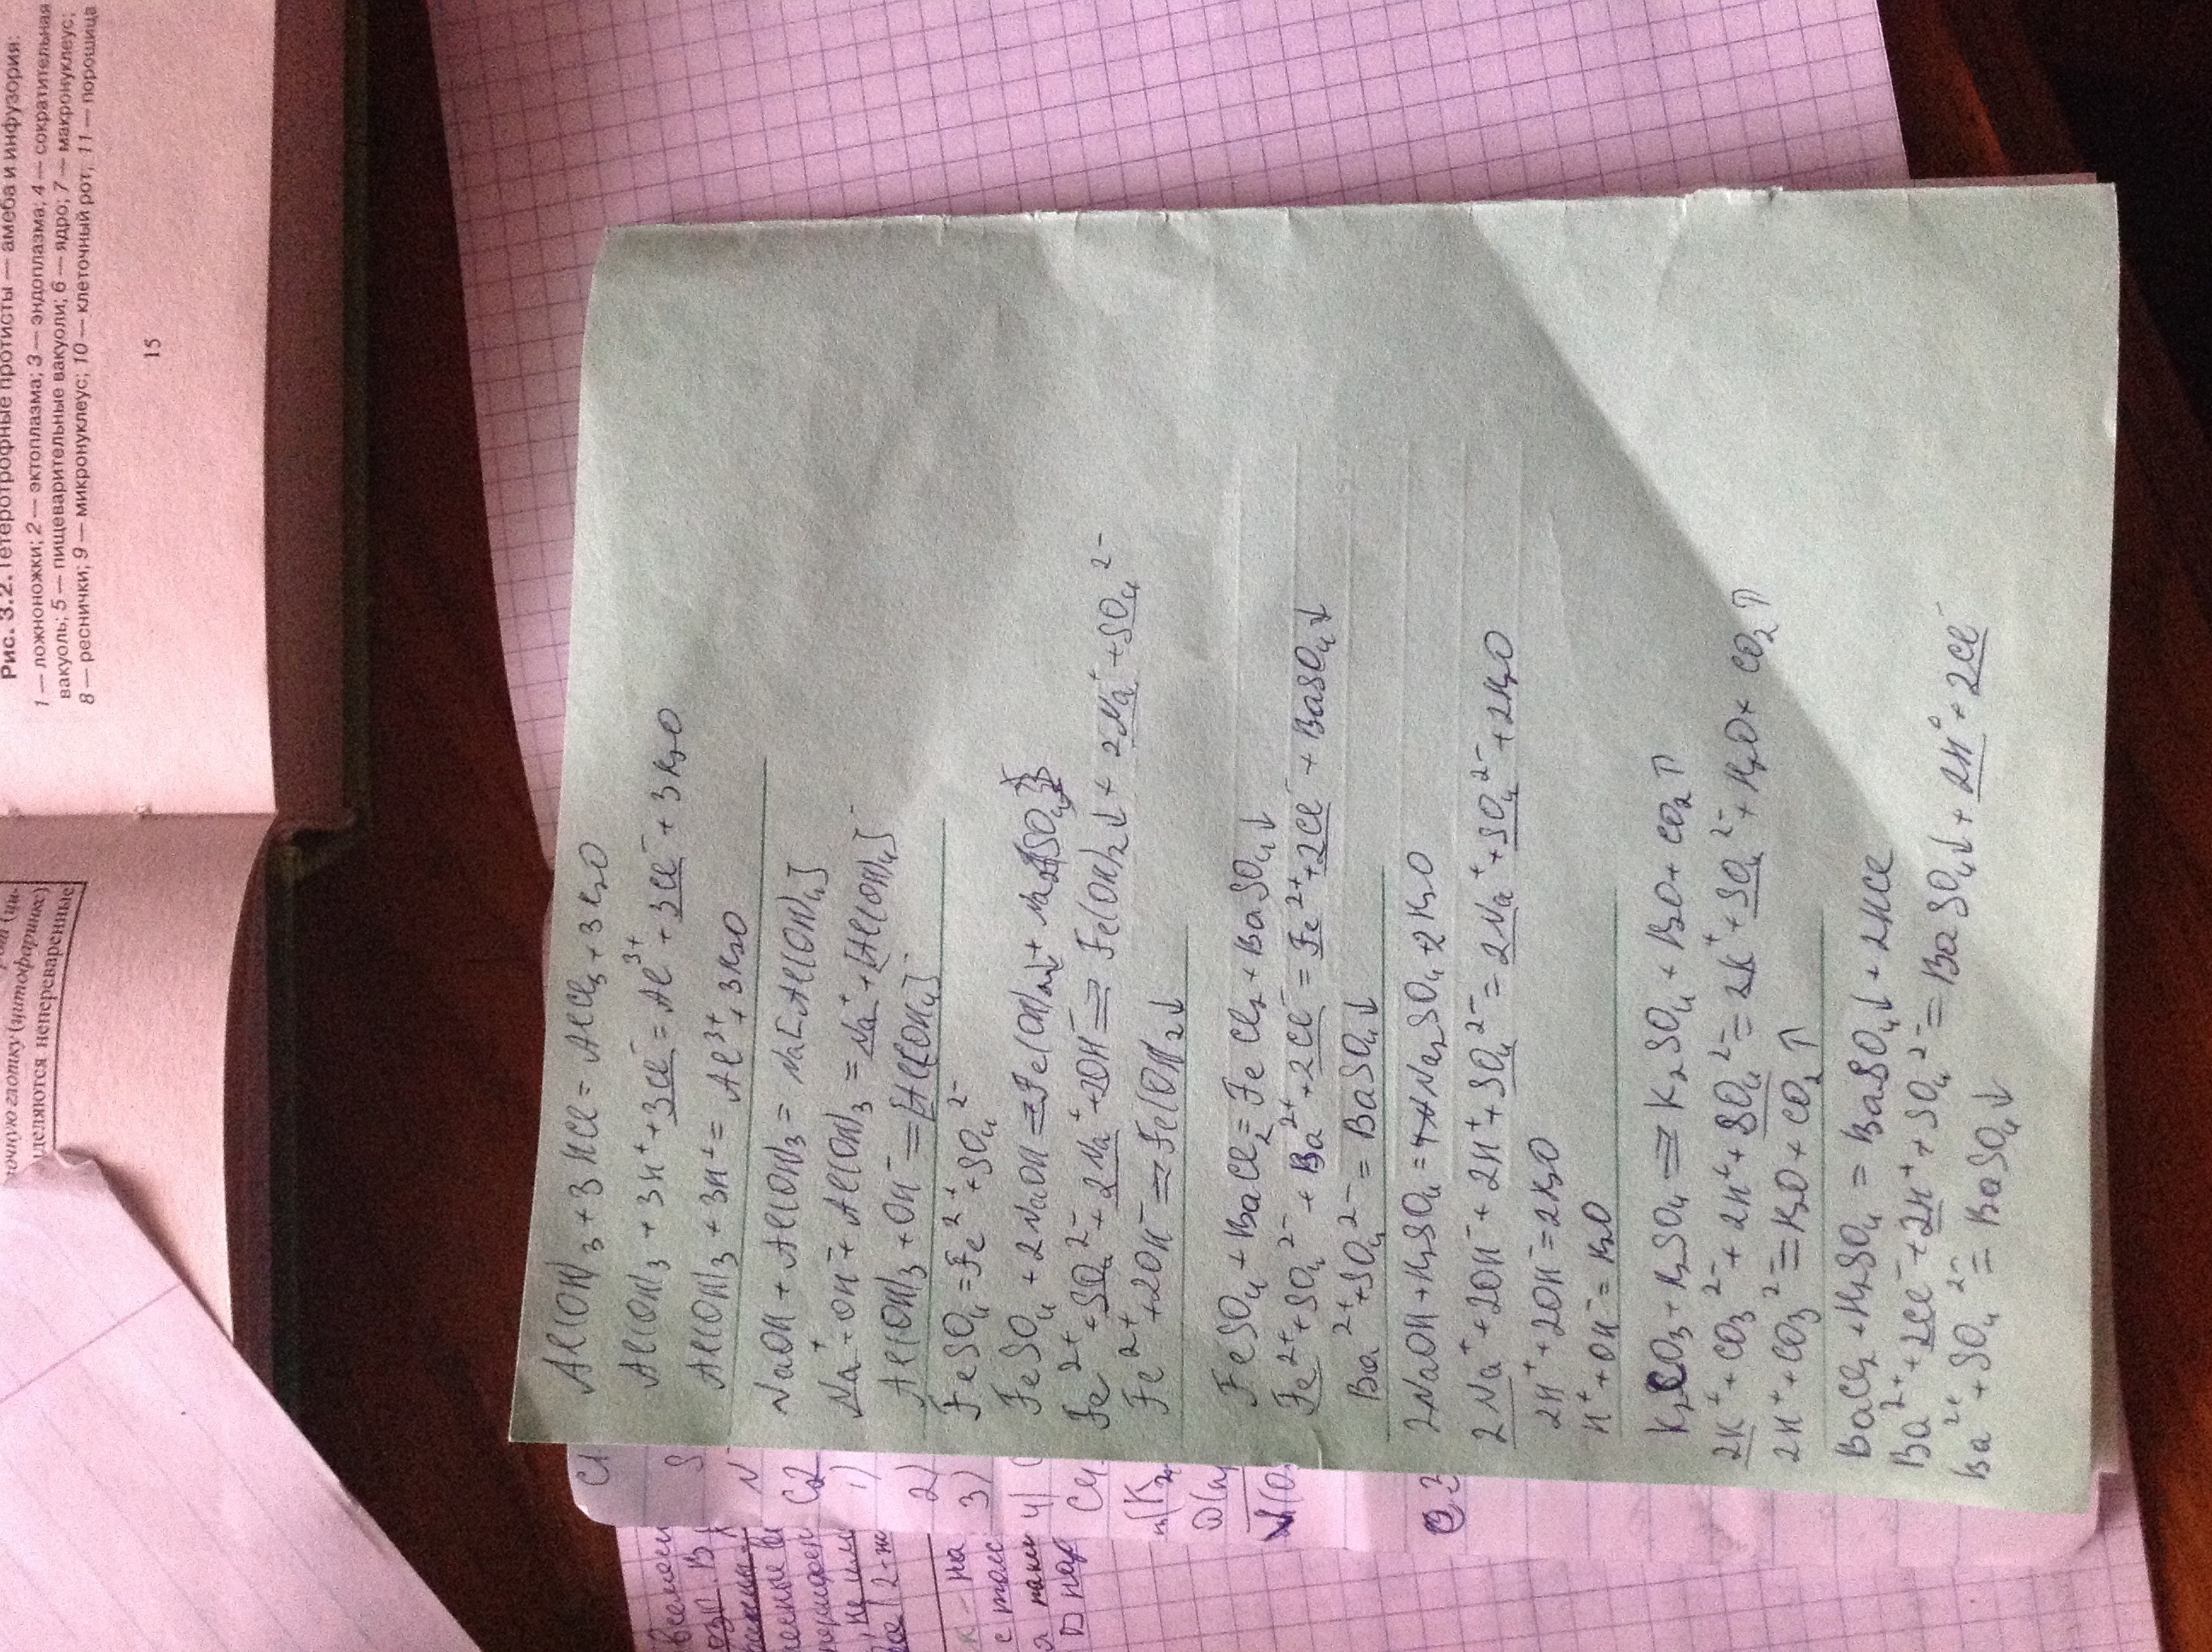 Рис. 3.2. Гетеротрофные протисты — амеба и инфузория:
1 — ложноножки; 2 — эктоплазма; 3 — эндоплазма, 4 — сократительная
вакуоль; 5 — пищеварительные вакуоли; 6 — ядро; 7 — макронуклеус;
8 — реснички; 9 — микронуклеус; 10 — клеточный рот, 11 — порошица
15
рот (ци-
точную глотку (цитофаринкс)
деляются непереваренные
Al(OH)3 + 3HCl = AlCl3 + 3H2O
Al(OH)3 + 3H⁺ + 3Cl⁻ = Al³⁺ + 3Cl⁻ + 3H2O
Al(OH)3 + 3H⁺ = Al³⁺ + 3H2O
NaOH + Al(OH)3 = Na[Al(OH)4]
Na⁺ + OH⁻ + Al(OH)3 = Na⁺ + [Al(OH)4]⁻
Al(OH)3 + OH⁻ = [Al(OH)4]⁻
FeSO4 = Fe²⁺ + SO4²⁻
FeSO4 + 2NaOH = Fe(OH)2↓ + Na2SO4
Fe²⁺ + SO4²⁻ + 2Na⁺ + 2OH⁻ = Fe(OH)2↓ + 2Na⁺ + SO4²⁻
Fe²⁺ + 2OH⁻ = Fe(OH)2↓
FeSO4 + BaCl2 = FeCl2 + BaSO4↓
Fe²⁺ + SO4²⁻ + Ba²⁺ + 2Cl⁻ = Fe²⁺ + 2Cl⁻ + BaSO4↓
Ba²⁺ + SO4²⁻ = BaSO4↓
2NaOH + H2SO4 = Na2SO4 + 2H2O
2Na⁺ + 2OH⁻ + 2H⁺ + SO4²⁻ = 2Na⁺ + SO4²⁻ + 2H2O
2H⁺ + 2OH⁻ = 2H2O
H⁺ + OH⁻ = H2O
K2CO3 + H2SO4 = K2SO4 + H2O + CO2↑
2K⁺ + CO3²⁻ + 2H⁺ + SO4²⁻ = 2K⁺ + SO4²⁻ + H2O + CO2↑
2H⁺ + CO3²⁻ = H2O + CO2↑
BaCl2 + H2SO4 = BaSO4↓ + 2HCl
Ba²⁺ + 2Cl⁻ + 2H⁺ + SO4²⁻ = BaSO4↓ + 2H⁺ + 2Cl⁻
Ba²⁺ + SO4²⁻ = BaSO4↓